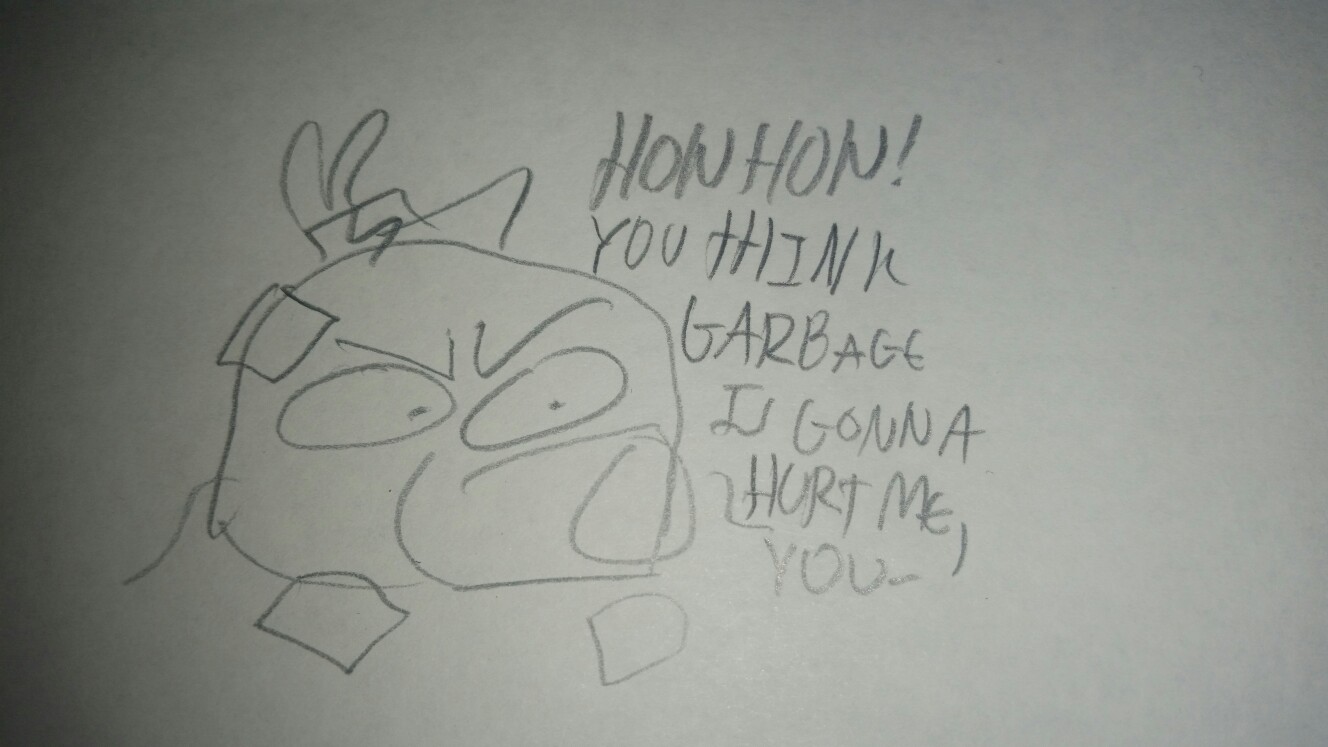 HONHON!
YOU THINK
GARBAGE
IS GONNA
HURT ME,
YOU-